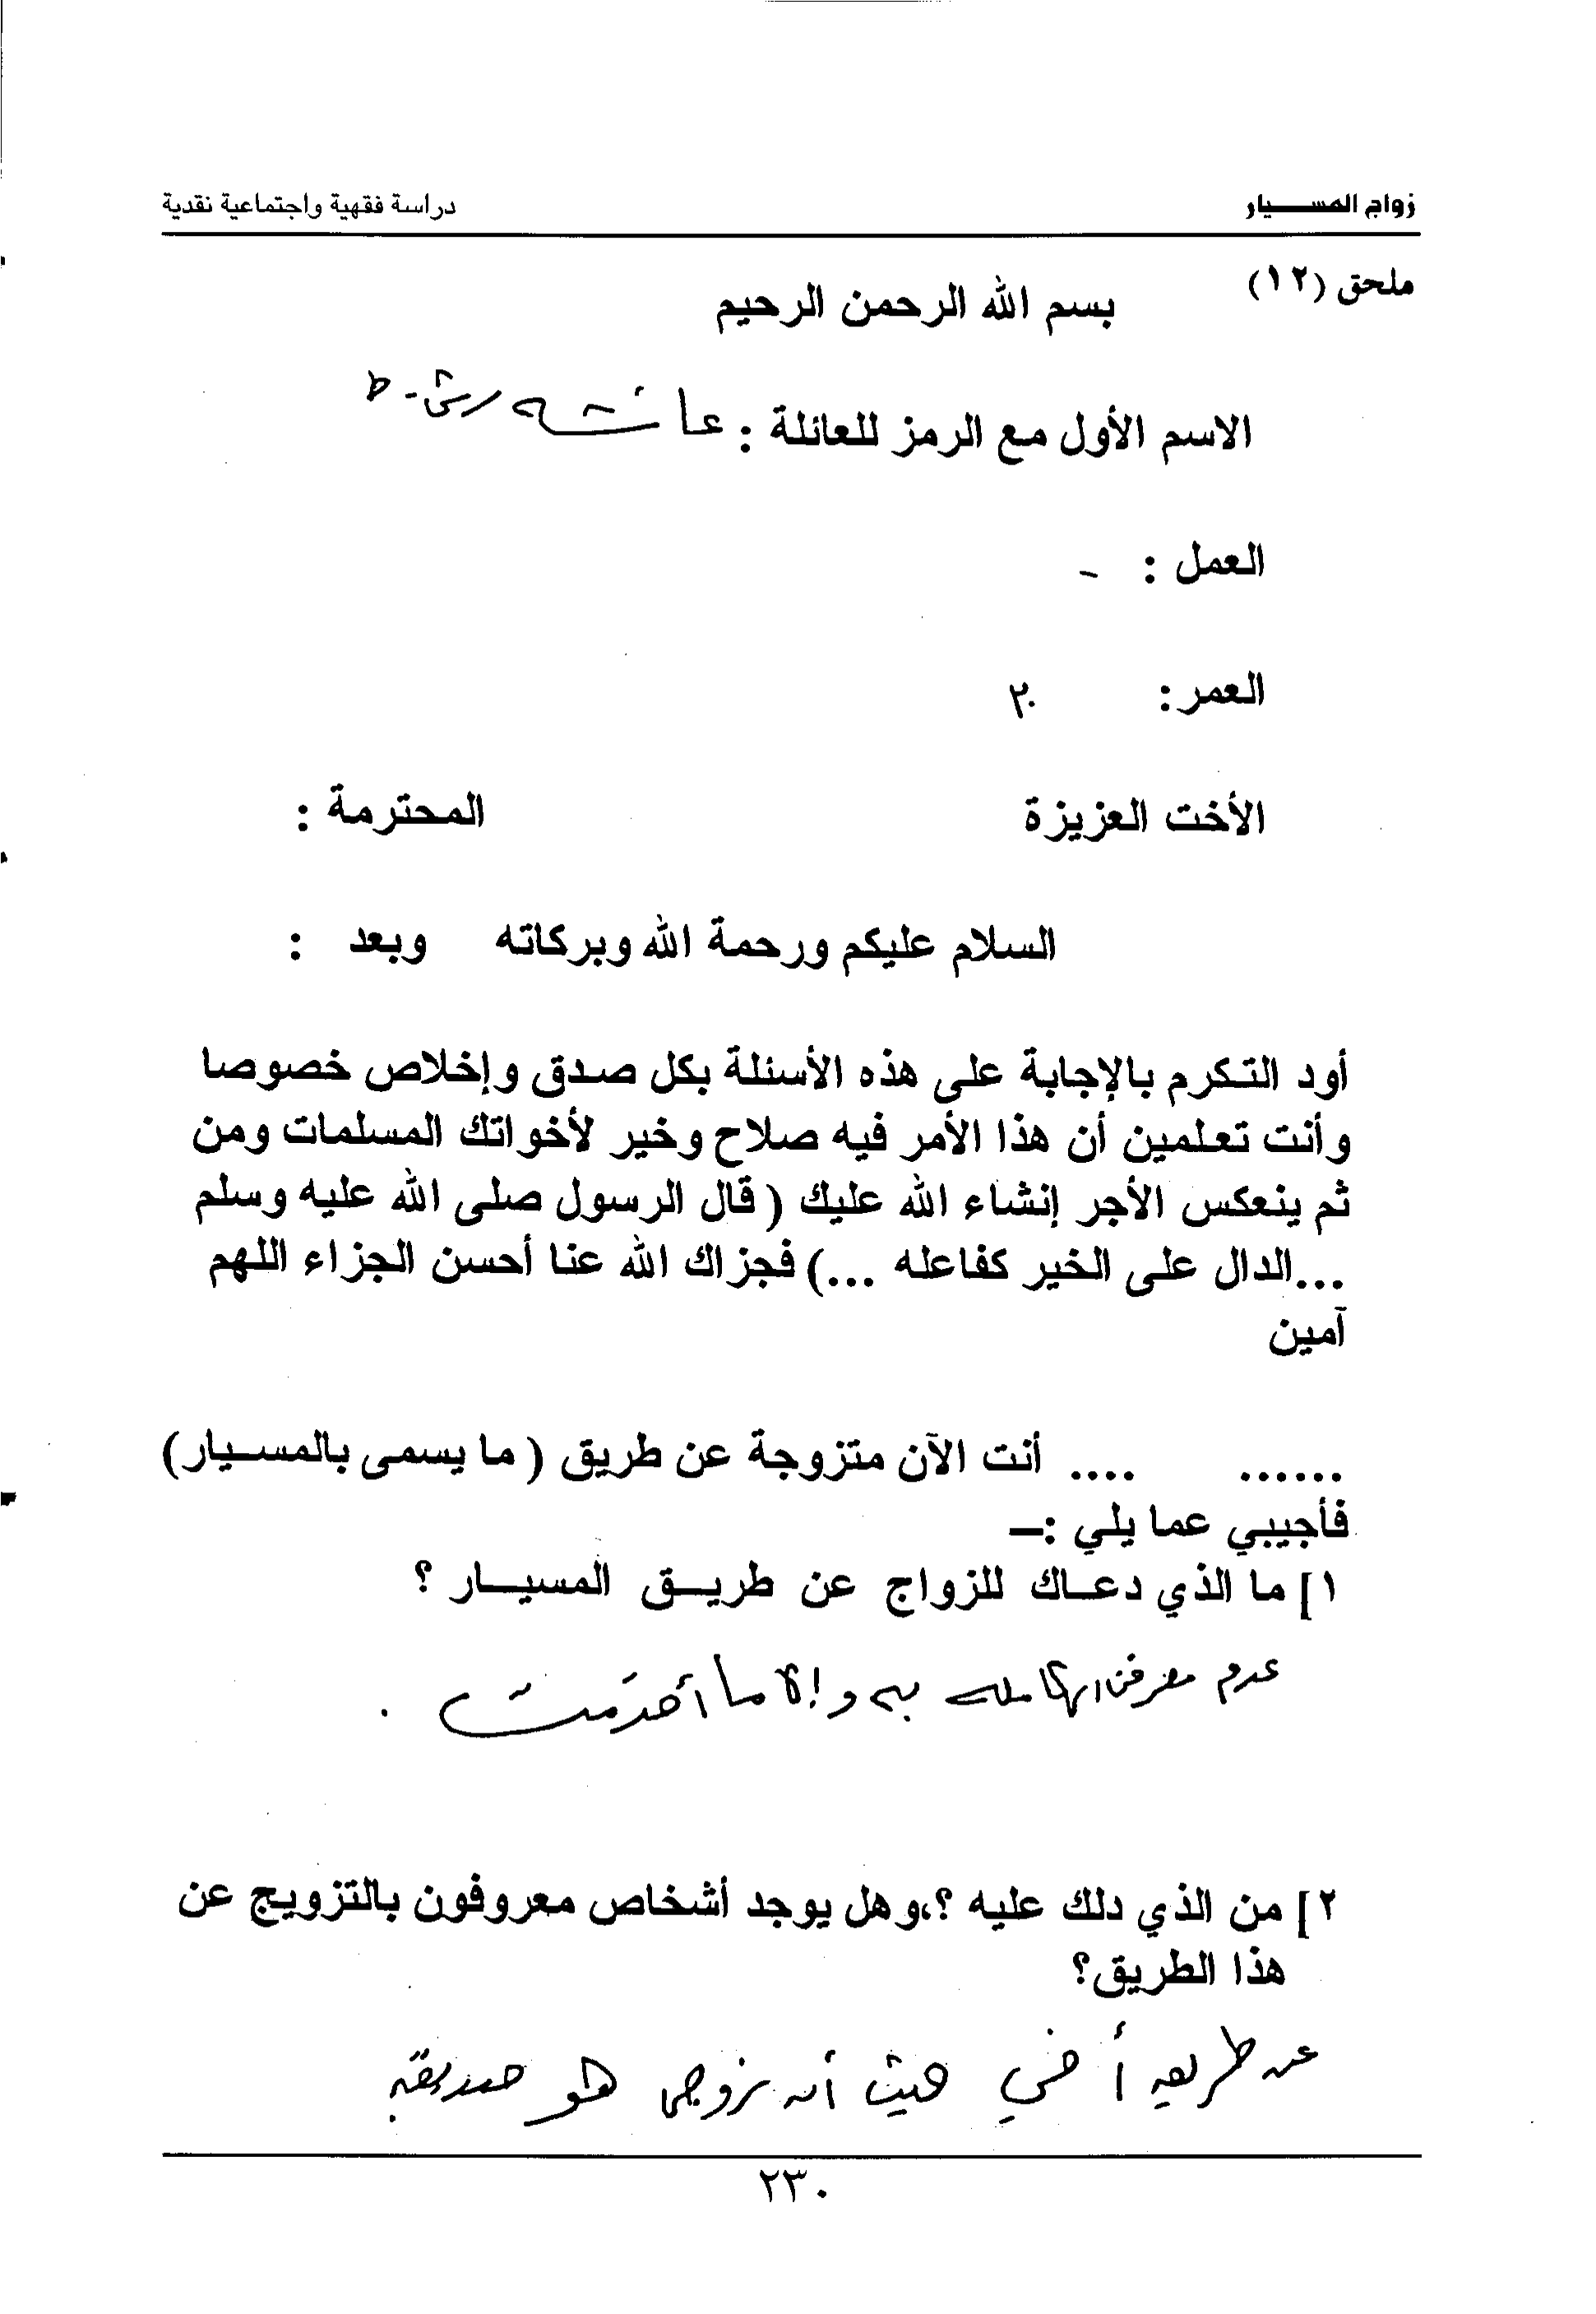 زواج المسيار
دراسة فقهية واجتماعية نقدية
ملحق (١٢)
بسم الله الرحمن الرحيم
الاسم الأول مع الرمز للعائلة : عائشه
العمل : -
العمر : ٢٠
الأخت العزيزة المحترمة :
السلام عليكم ورحمة الله وبركاته وبعد :
أود التكرم بالإجابة على هذه الأسئلة بكل صدق وإخلاص خصوصا
وأنت تعلمين أن هذا الأمر فيه صلاح وخير لأخواتك المسلمات ومن
ثم ينعكس الأجر إنشاء الله عليك ( قال الرسول صلى الله عليه وسلم
...الدال على الخير كفاعله ...) فجزاك الله عنا أحسن الجزاء اللهم
آمين
...... .... أنت الآن متزوجة عن طريق ( ما يسمى بالمسيار )
فأجيبي عما يلي :–
١] ما الذي دعاك للزواج عن طريق المسيار ؟
عدم معرفتي الكامله به وإلا ما أقدمت .
٢] من الذي دلك عليه ؟،وهل يوجد أشخاص معروفون بالتزويج عن
هذا الطريق؟
عن طريق أخي حيث أن زوجي هو صديقه
٢٣٠